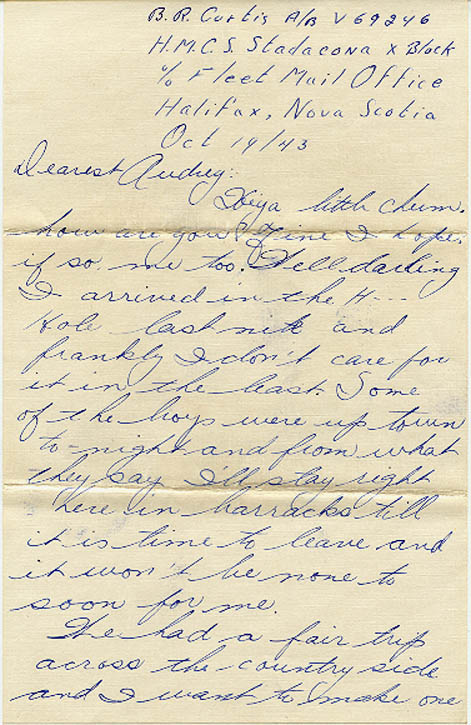 B. R. Curtis A/B V 69246
H.M.C.S. Stadacona X Block
% Fleet Mail Office
Halifax, Nova Scotia
Oct 19/43
Dearest Audrey:
Hiya little chum.
how are you? Fine I hope.
if so, me too. Well darling
I arrived in the H----
Hole last nite and
frankly I don't care for
it in the least. Some
of the boys were up town
to-night and from what
they say I'll stay right
here in barracks till
it is time to leave and
it won't be none to
soon for me.
We had a fair trip
across the country side
and I want to make one